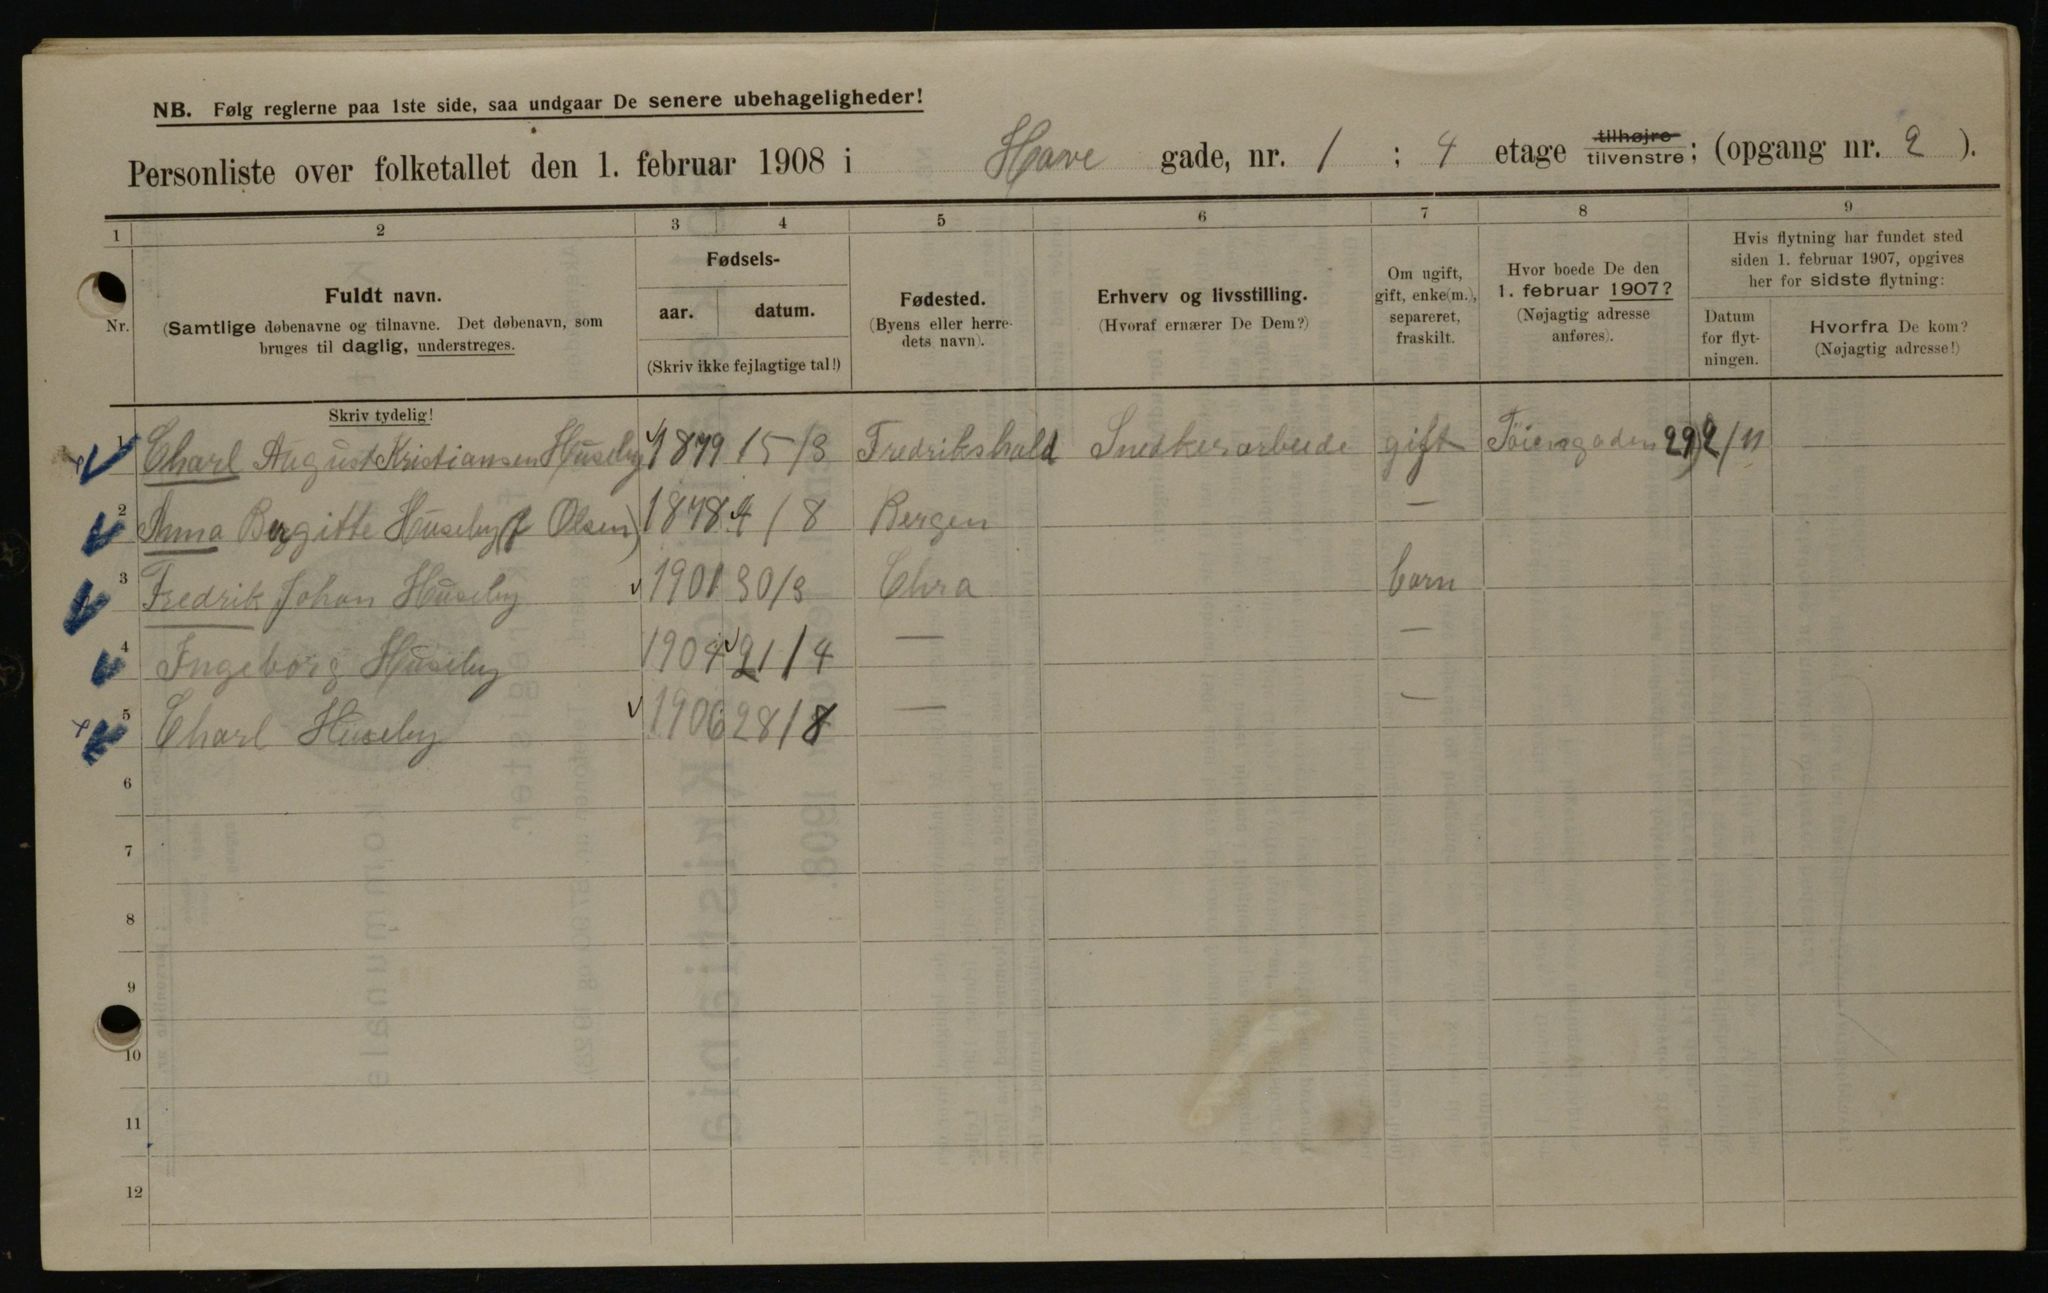 NB. Følg reglerne paa 1ste side, saa undgaar De senere ubehageligheder!
Personliste over folketallet den 1. februar 1908 i Have gade, nr. 1 ; 4 etage tilhøjre tilvenstre; (opgang nr. 2 ).
1 2 3 4 5 6 7 8 9
Nr.
Fuldt navn.
(Samtlige døbenavne og tilnavne. Det døbenavn, som
bruges til daglig, understreges.
Skriv tydelig!
Fødsels-
aar. datum.
(Skriv ikke fejlagtige tal!)
Fødested.
(Byens eller herre-
dets navn).
Erhverv og livsstilling.
(Hvoraf ernærer De Dem?)
Om ugift,
gift, enke(m.),
separeret,
fraskilt.
Hvor boede De den
1. februar 1907?
(Nøjagtig adresse
anføres).
Hvis flytning har fundet sted
siden 1. februar 1907, opgives
her for sidste flytning:
Datum
for flyt-
ningen.
Hvorfra De kom?
(Nøjagtig adresse!)
1 Charl August Kristiansen Huseby 1879 15/3 Fredrikshald Snedkerarbeide gift Töiengaden 29 2/11
2 Anna Bergitte Huseby (f Olsen) 1878 4/8 Bergen —
3 Fredrik Johan Huseby 1901 30/3 Chra barn
4 Ingeborg Huseby 1904 21/4 — —
5 Charl Huseby 1906 28/8 — —
6
7
8
9
10
11
12